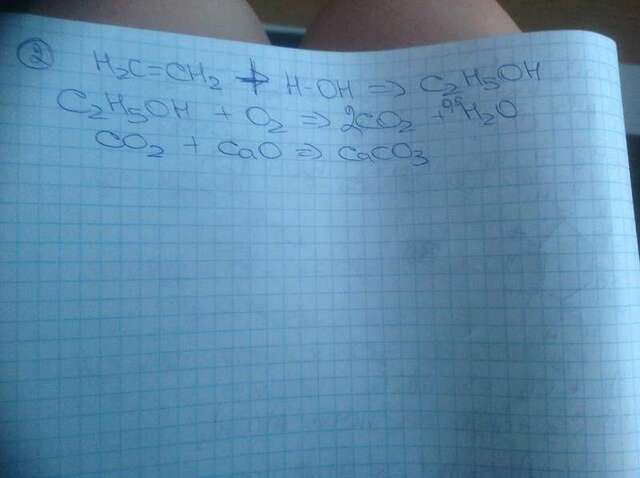 ② H₂C=CH₂ + H-OH ⇒ C₂H₅OH
C₂H₅OH + O₂ ⇒ 2CO₂ + H₂O
CO₂ + CaO ⇒ CaCO₃